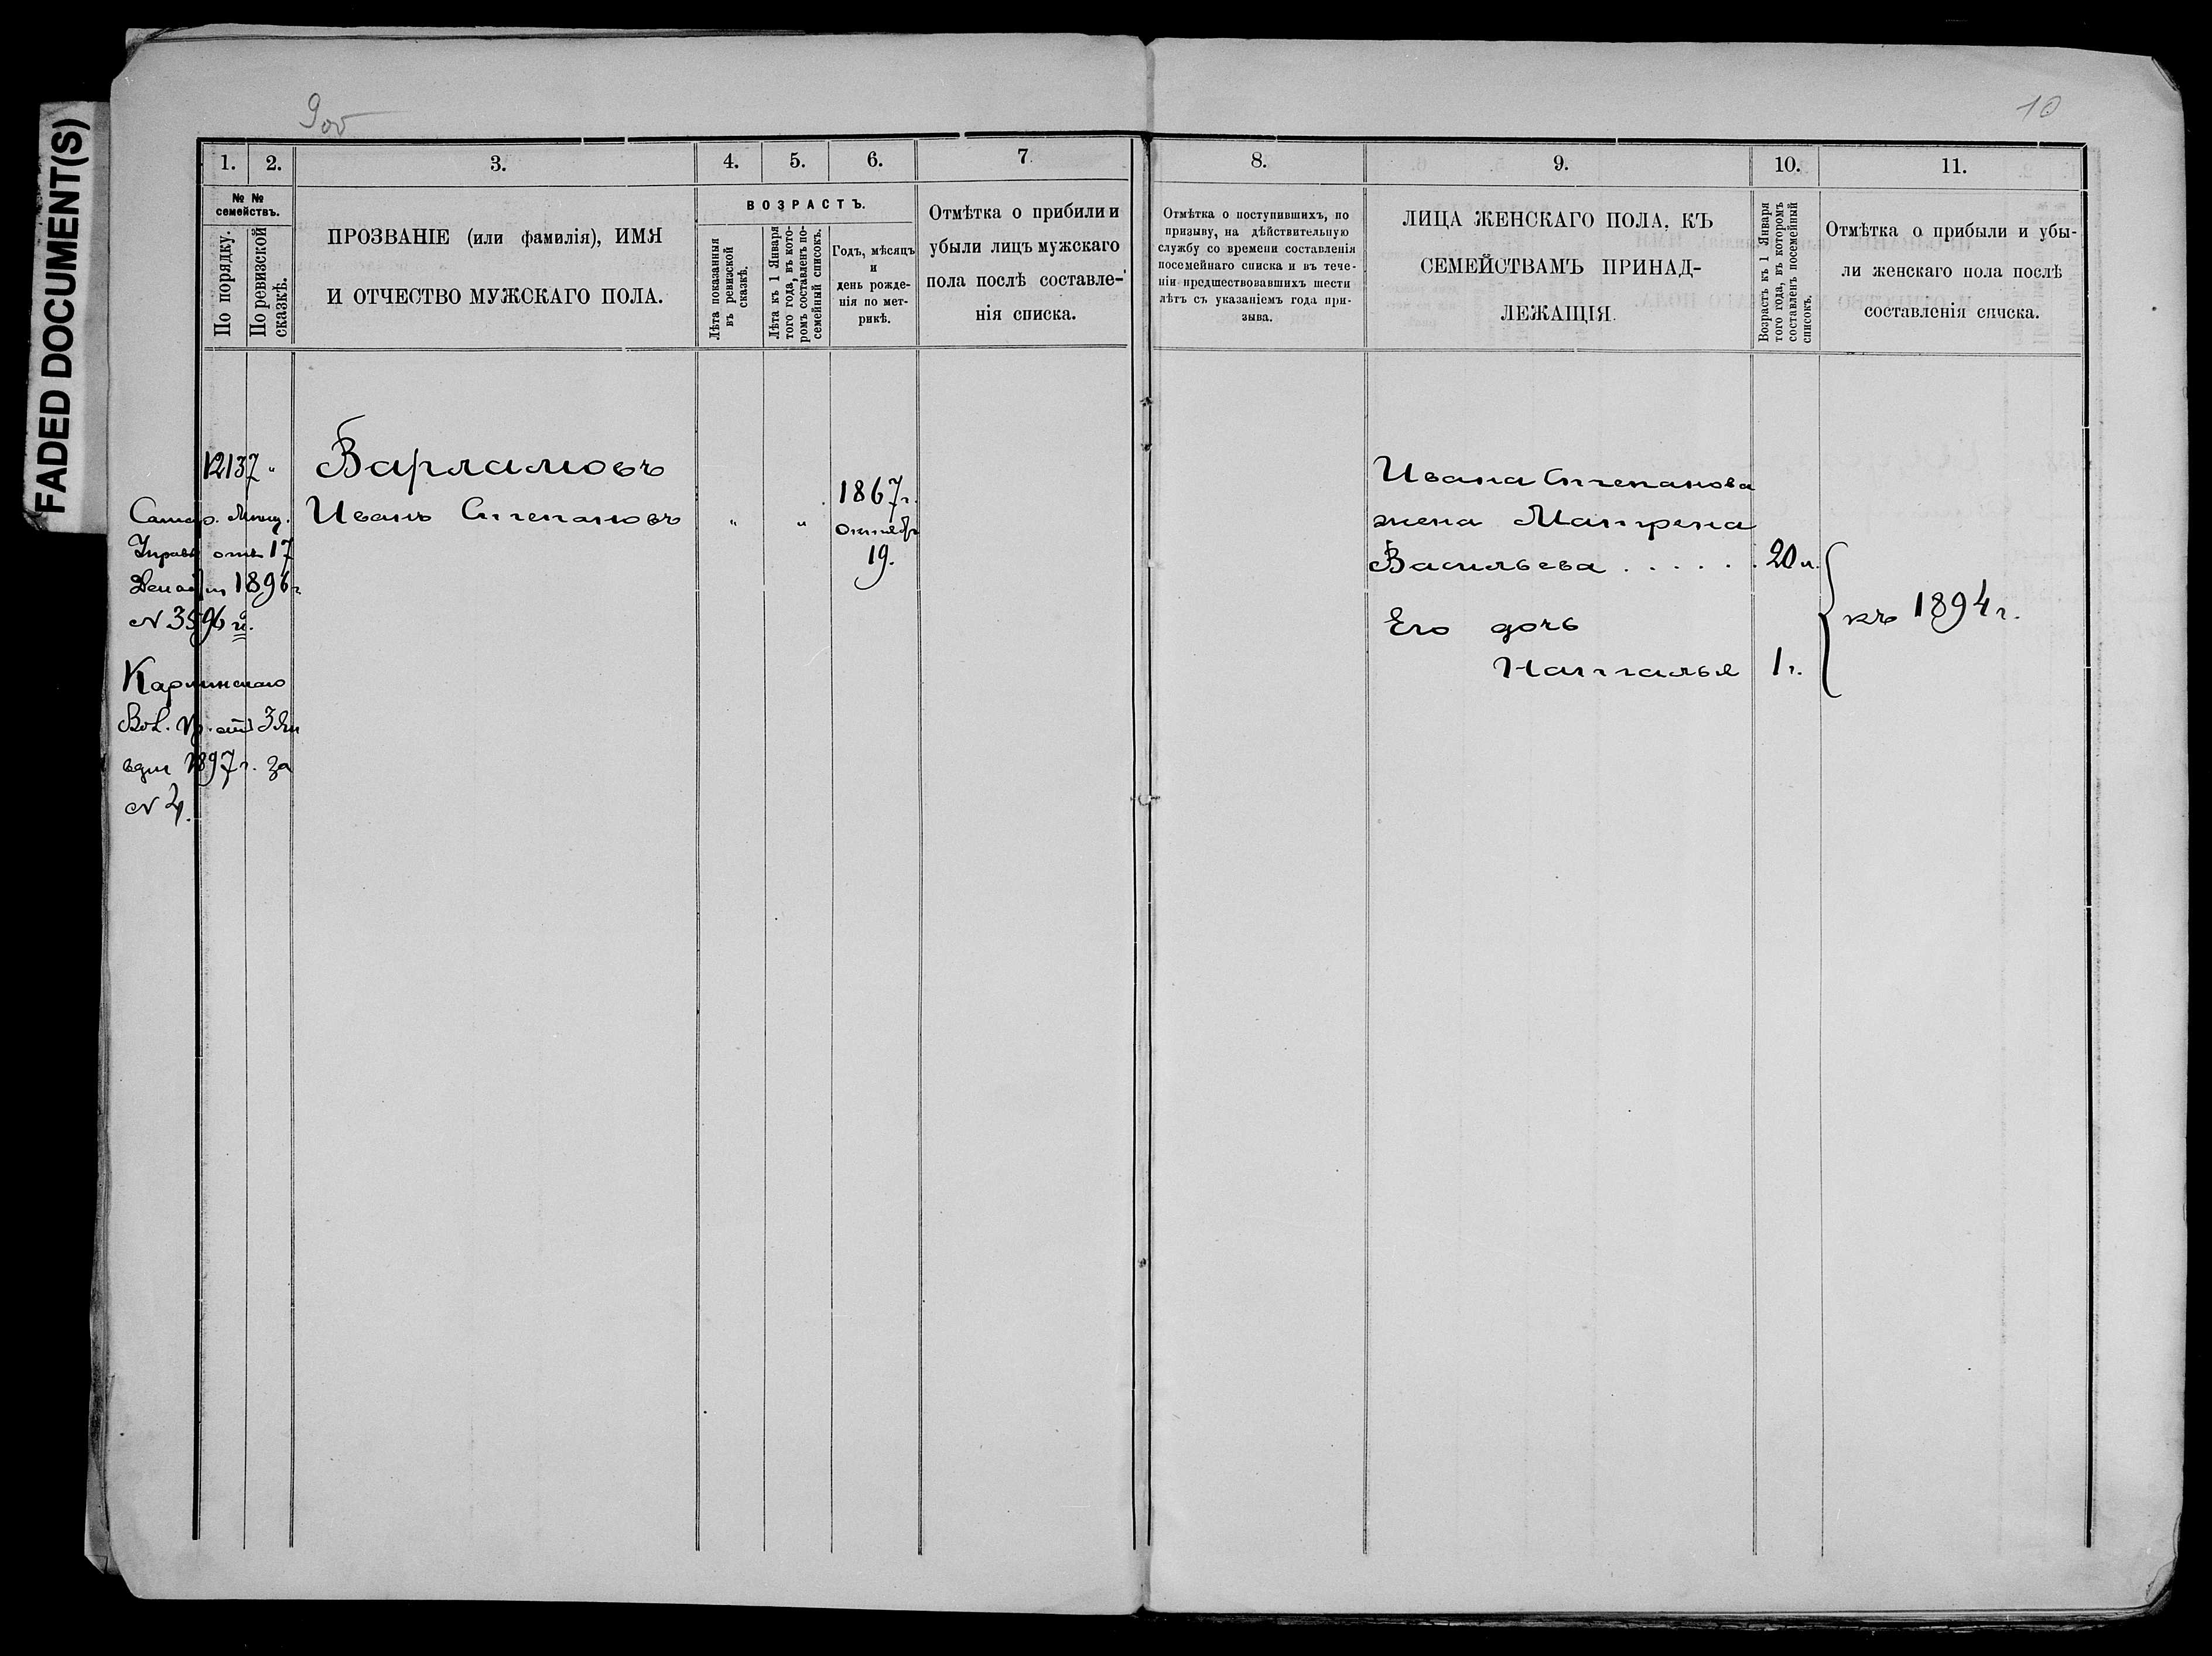 FADED DOCUMENT(S)
9об
10
1. 2. 3. 4. 5. 6. 7.
№ № семействъ.
По порядку.
По ревизской сказкѣ.
ПРОЗВАНІЕ (или фамилія), ИМЯ
И ОТЧЕСТВО МУЖСКАГО ПОЛА.
ВОЗРАСТЪ.
Лѣта показанныя
въ ревизской
сказкѣ.
Лѣта къ 1 Января
того года, въ кото-
ромъ составленъ по-
семейный списокъ.
Годъ, мѣсяцъ
и
день рожде-
нія по мет-
рикѣ.
Отмѣтка о прибыли и
убыли лицъ мужскаго
пола послѣ составле-
нія списка.
8. 9. 10. 11.
Отмѣтка о поступившихъ, по
призыву, на дѣйствительную
службу со времени составленія
посемейнаго списка и въ тече-
ніи предшествовавшихъ шести
лѣтъ съ указаніемъ года при-
зыва.
ЛИЦА ЖЕНСКАГО ПОЛА, КЪ
СЕМЕЙСТВАМЪ ПРИНАД-
ЛЕЖАЩІЯ.
Возрастъ къ 1 Января
того года, въ которомъ
составленъ посемейный
списокъ.
Отмѣтка о прибыли и убы-
ли женскаго пола послѣ
составленія списка.
12137 "
Варламовъ
Иванъ Степановъ " "
1867 г.
октябр
19.
Самар. Мѣщ.
Управ отъ 17
1896 г
N 3596
Карлинскаго
Вол. Пр. отъ 3 Ян
варя 1897 г. за
N 2.
Ивана Степанова
жена Матрена
Васильева . . . . . . 20 л.
Его дочь
Наталья 1 г.
къ 1894 г.